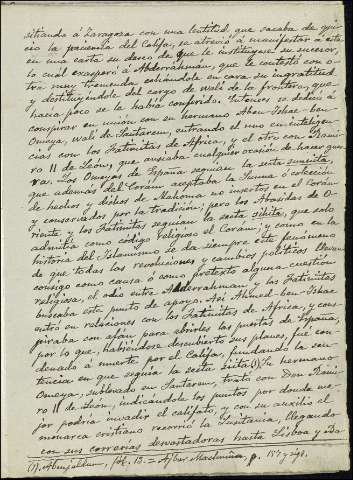 sitiando á Zaragoza con una lentitud que sacaba de qui-
cio la paciencia del Califa, se atrevió á manifestar á éste
en una carta su deseo de que le instituyese su sucesor,
lo cual exasperó á Abderrahman, que le contestó con o-
tra muy tremenda echándole en cara su ingratitud
y destituyéndole del cargo de walí de la frontera, que
hacía poco se le había conferido. Entonces se dedicó á
conspirar en unión con su hermano Aben-Ishac-ben-
Omeya, walí de Santarem, entrando el uno en inteligen-
cias con los Fatimitas de África, y el otro con Rami-
ro II de León, que ansiaba cualquier ocasión de hacer gue-
rra. Los Omeyas de España seguían la secta sunnita,
que además del Corán aceptaba la Sunna ó colección
de hechos y dichos de Mahoma no insertos en el Corán
y conservados por la tradición; pero los Abasidas de O-
riente y los Fatimitas seguían la secta schita, que solo
admitía como código religioso el Corán; y como en la
historia del Islamismo se da siempre este fenómeno
de que todas las revoluciones y cambios políticos llevan
consigo como causa ó como pretexto alguna cuestión
religiosa, el odio entre Abderrahman y los Fatimitas
buscaba este punto de apoyo. Así Ahmed-ben-Ishac
entró en relaciones con los Fatimitas de África, y cons-
piraba con afán para abrirles las puertas de España,
por lo que, habiéndose descubierto sus planes, fué con-
denado á muerte por el Califa, fundando la sen-
tencia en que seguía la secta schita (1). Su hermano
Omeya, sublevado en Santarem, trató con Don Rami-
ro II de León, indicándole los puntos por donde me-
jor podría invadir el califato, y con su auxilio el
monarca cristiano recorrió la Lusitania, llegando
con sus correrías devastadoras hasta Lisboa y
(1). Abenjaldun, fol. 15. = Ajbar Machmúa, p. 157 y sigs.